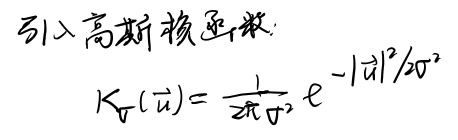 引入高斯核函数:
K_σ(\vec{u}) = \frac{1}{2π σ^2} e^{-|\vec{u}|^2/2σ^2}